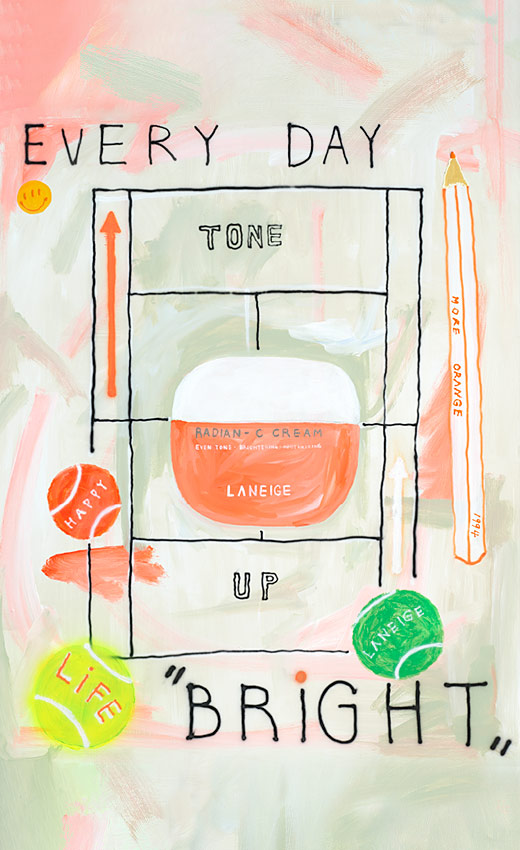 EVERY DAY
TONE
MORE ORANGE
1994
RADIAN-C CREAM
EVEN TONE · BRIGHTENING ·
LANEIGE
HAPPY
UP
LANEIGE
LiFE
"BRiGHT"